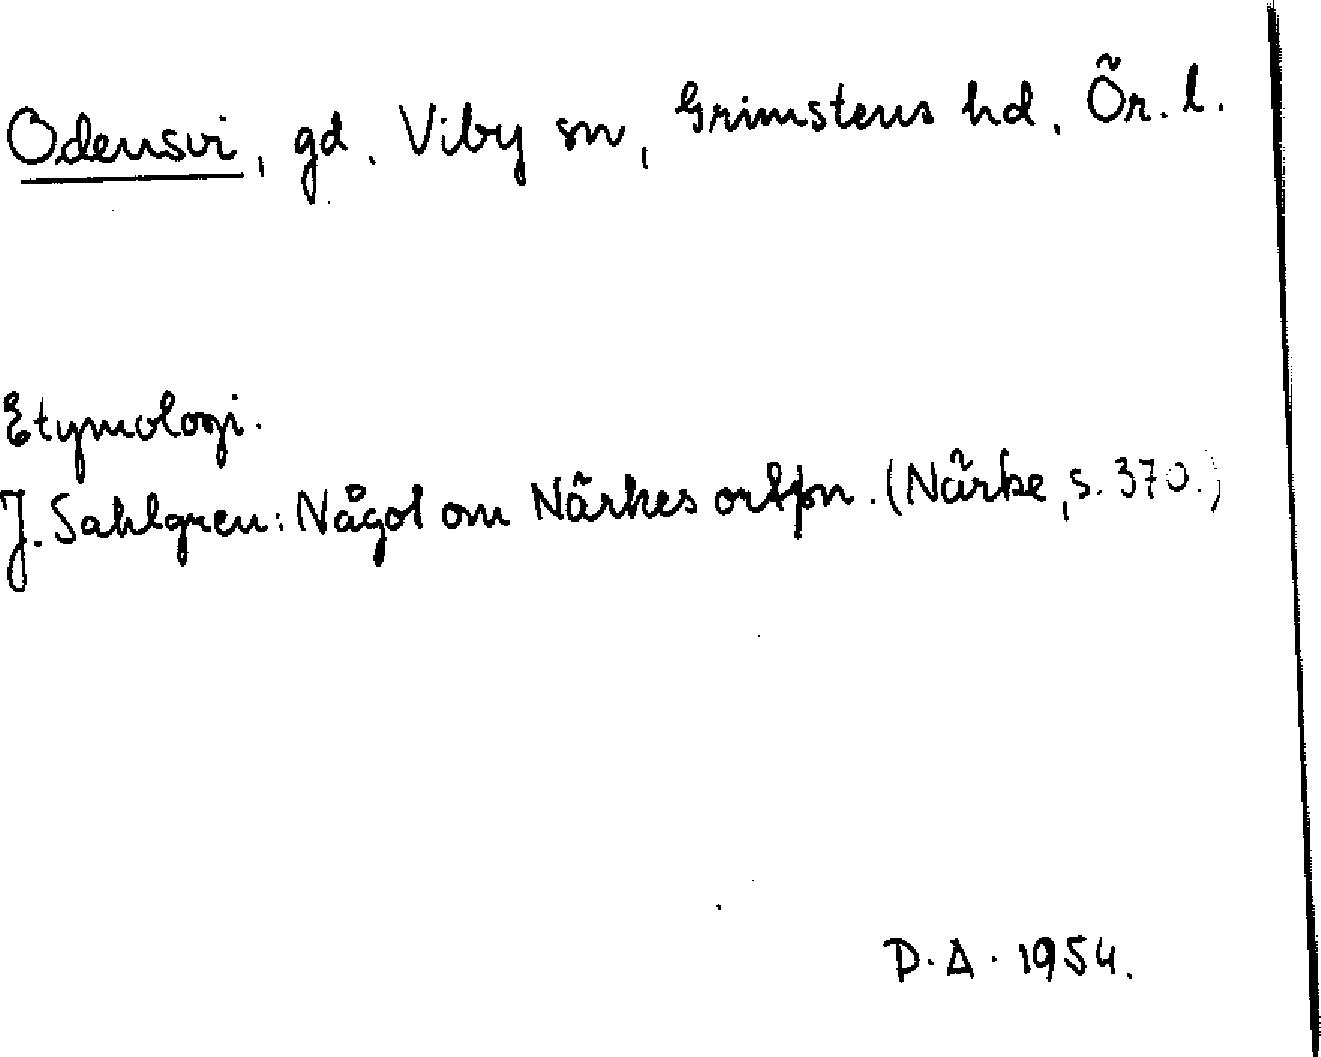 Odensvi, gd, Viby sn, Grimstens hd, Ör. l.
Etymologi.
J. Sahlgren: Något om Närkes ortsn. (Närke, s. 370.)
D. A. 1954.